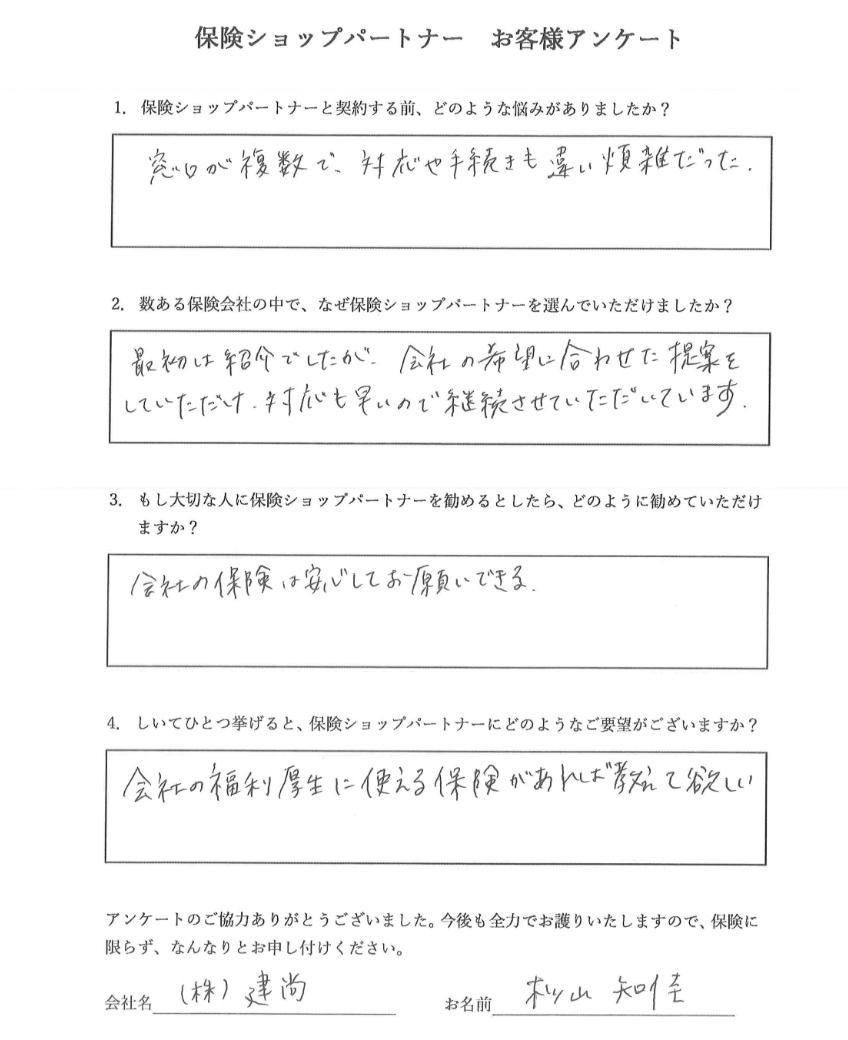 保険ショップパートナー　お客様アンケート
1. 保険ショップパートナーと契約する前、どのような悩みがありましたか？
窓口が複数で、対応や手続きも違い煩雑だった.
2. 数ある保険会社の中で、なぜ保険ショップパートナーを選んでいただけましたか？
最初は紹介でしたが、会社の希望に合わせた提案を
していただけ、対応も早いので継続させていただいています.
3. もし大切な人に保険ショップパートナーを勧めるとしたら、どのように勧めていただけ
ますか？
会社の保険は安心してお願いできる.
4. しいてひとつ挙げると、保険ショップパートナーにどのようなご要望がございますか？
会社の福利厚生に使える保険があれば教えて欲しい
アンケートのご協力ありがとうございました。今後も全力でお護りいたしますので、保険に
限らず、なんなりとお申し付けください。
会社名 (株)建尚 お名前 松山 知佳